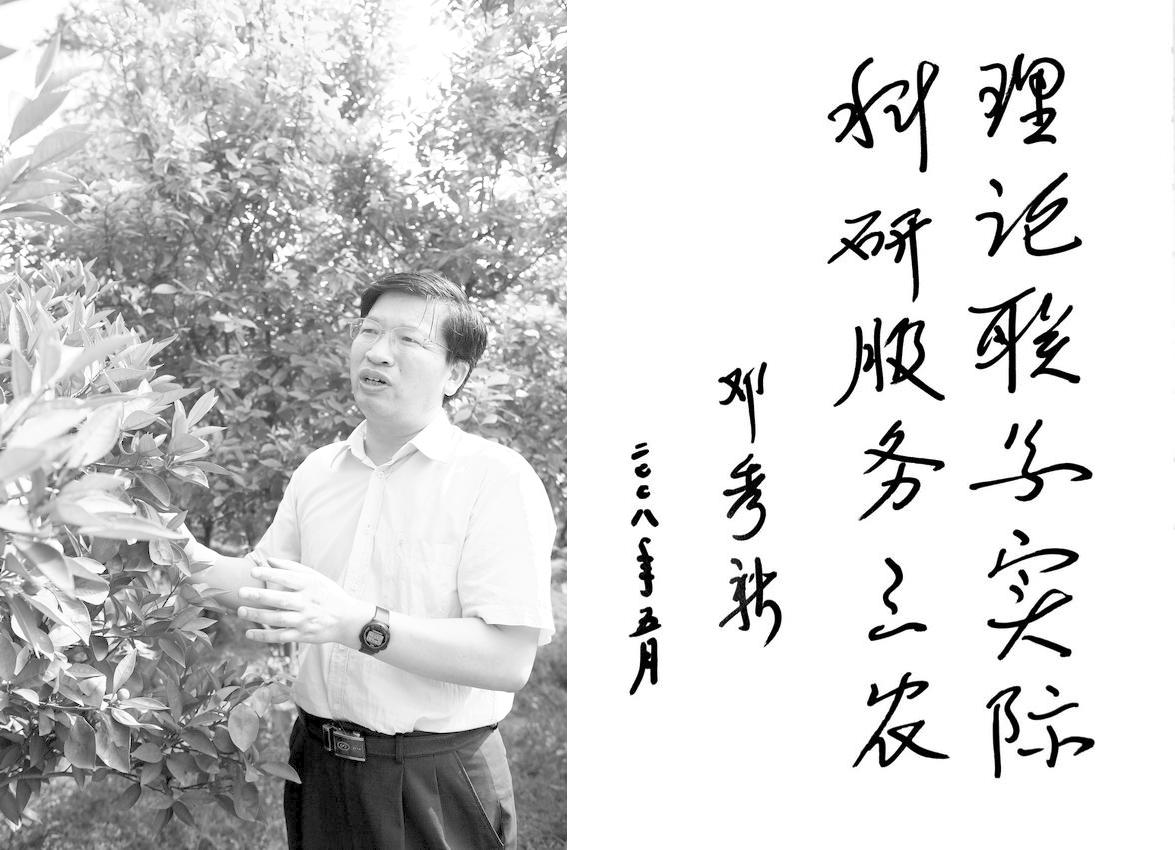 理论联系实际
科研服务三农
邓秀新
二〇〇八年五月